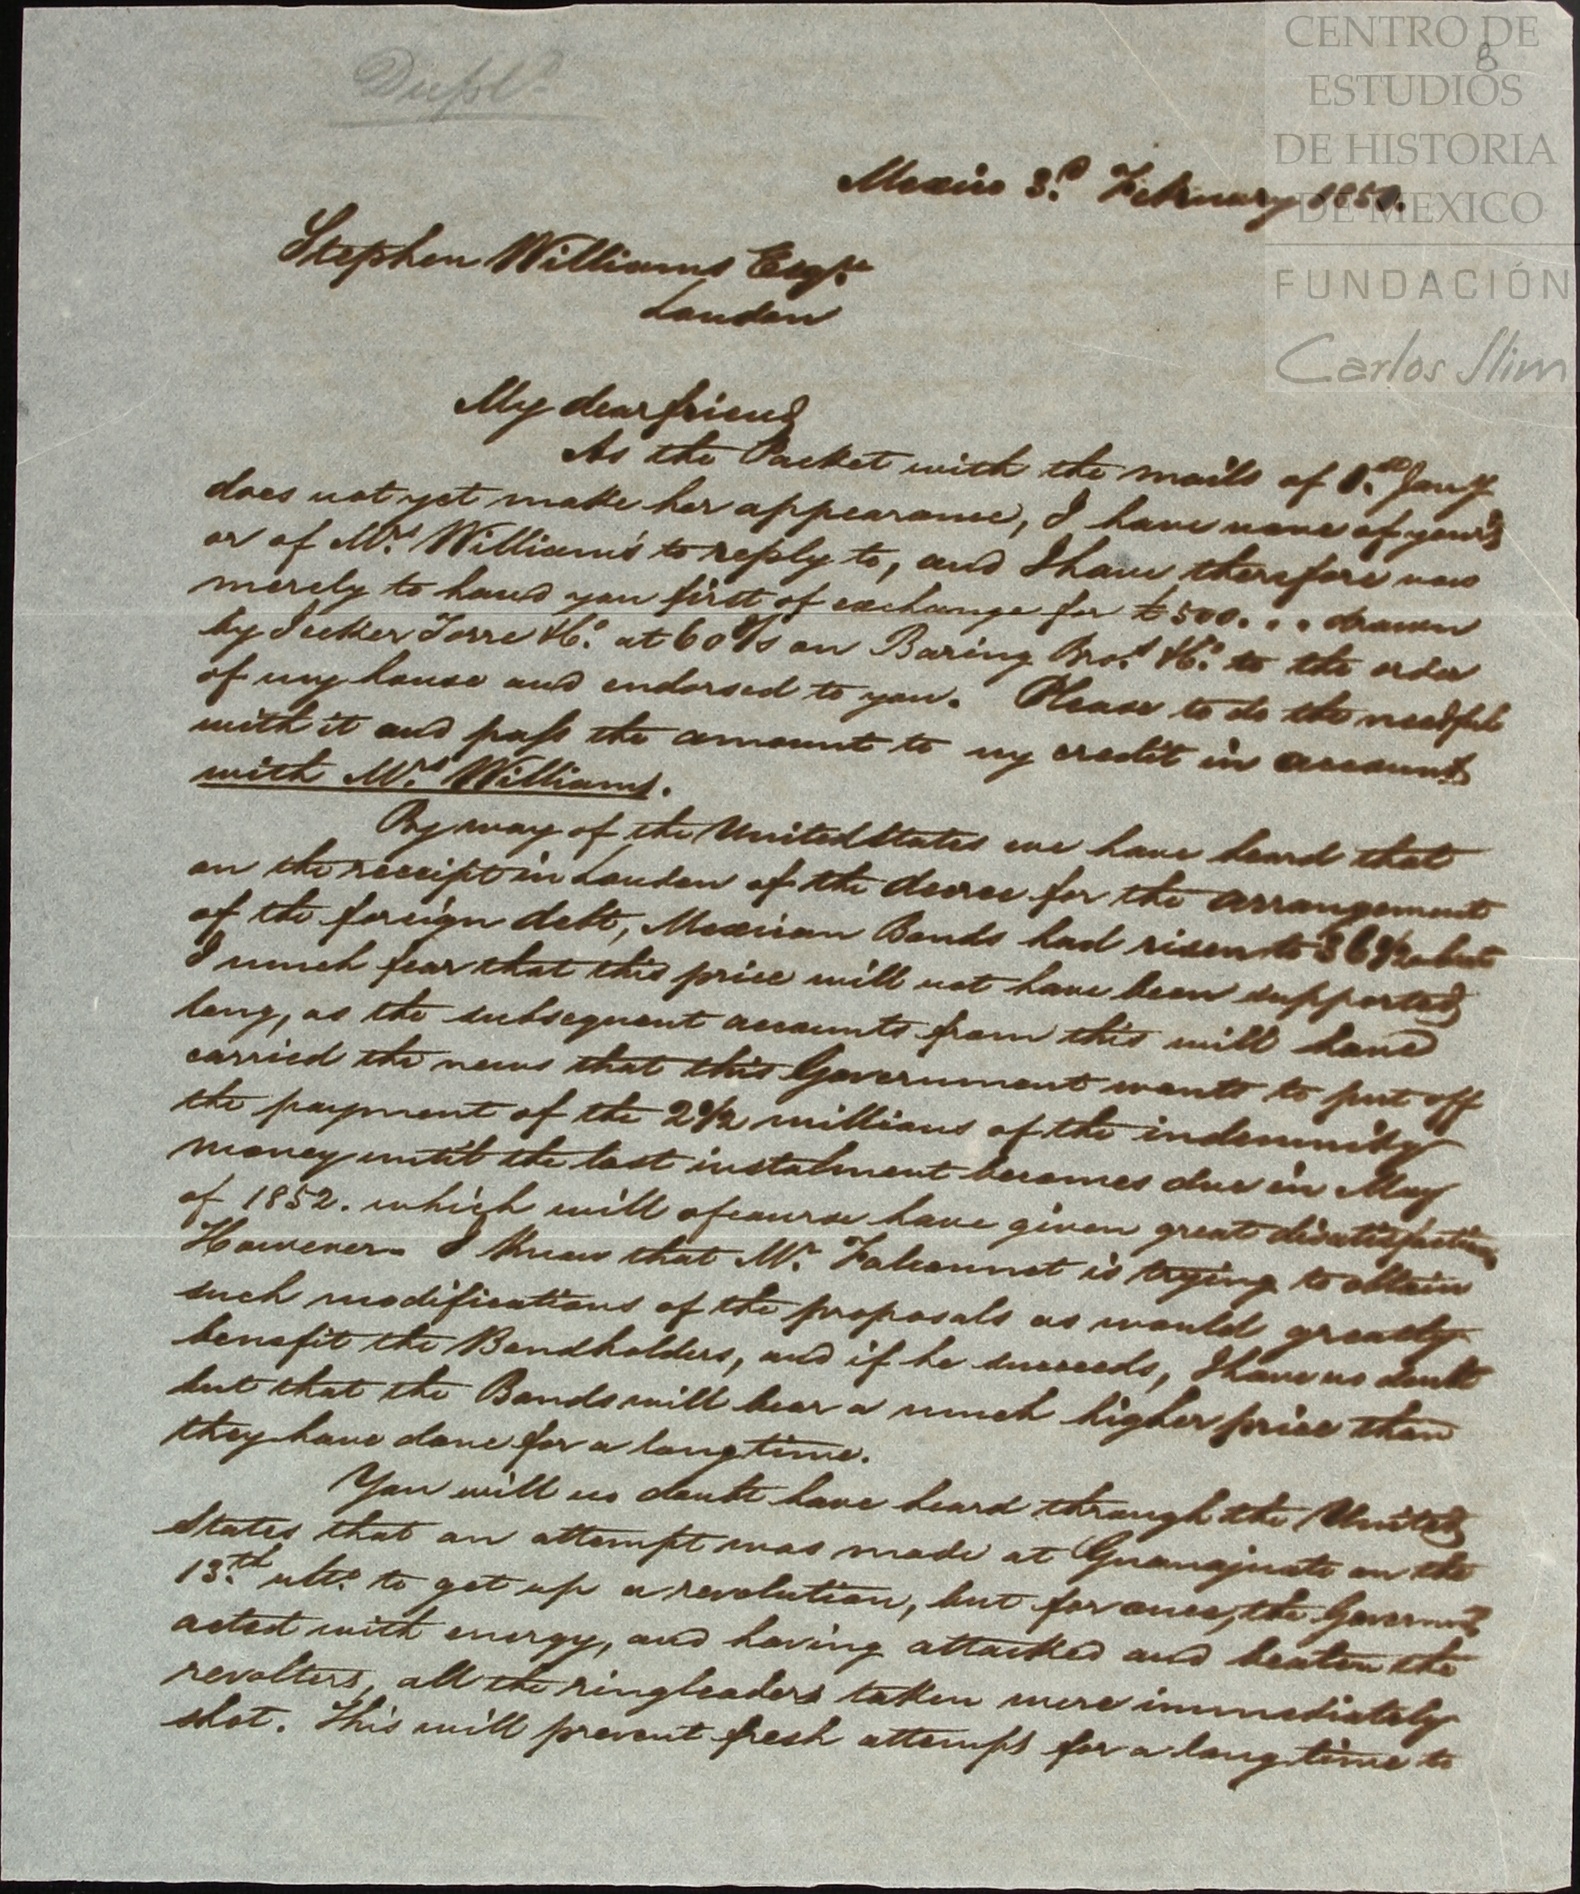 Dupl.
8
CENTRO DE
ESTUDIOS
DE HISTORIA
DE MEXICO
FUNDACIÓN
Carlos Slim
Mexico 3.d February 1850.
Stephen Williams Esqr.
London
My dear friend
As the Packet with the mails of 1.st Jany
does not yet make her appearance, I have none of your's
or of Mrs. Williams's to reply to, and I have therefore now
merely to hand you first of exchange for £500... drawn
by Jecker Torre &Co. at 60 d/s on Baring Bros. &Co. to the order
of my house and endorsed to you. Please to do the needful
with it and pass the amount to my credit in account
with Mrs. Williams.
By way of the United States we have heard that
on the receipt in London of the decree for the arrangement
of the foreign debt, Mexican Bonds had risen to 36 1/2 but
I much fear that this price will not have been supported
long, as the subsequent accounts from this will have
carried the news that this Government wants to put off
the payment of the 2 1/2 millions of the indemnity
money until the last instalment becomes due in May
of 1852. which will of course have given great disatisfaction
However I know that Mr. Falconnet is trying to obtain
such modifications of the proposals as would greatly
benefit the Bondholders, and if he succeeds, I have no doubt
but that the Bonds will bear a much higher price than
they have done for a long time.
You will no doubt have heard through the United
States that an attempt was made at Guanajuato on the
13.th ulto. to get up a revolution, but for once, the Governmt
acted with energy, and having attacked and beaten the
revolters, all the ringleaders taken were immediately
shot. This will prevent fresh attempts for a long time to